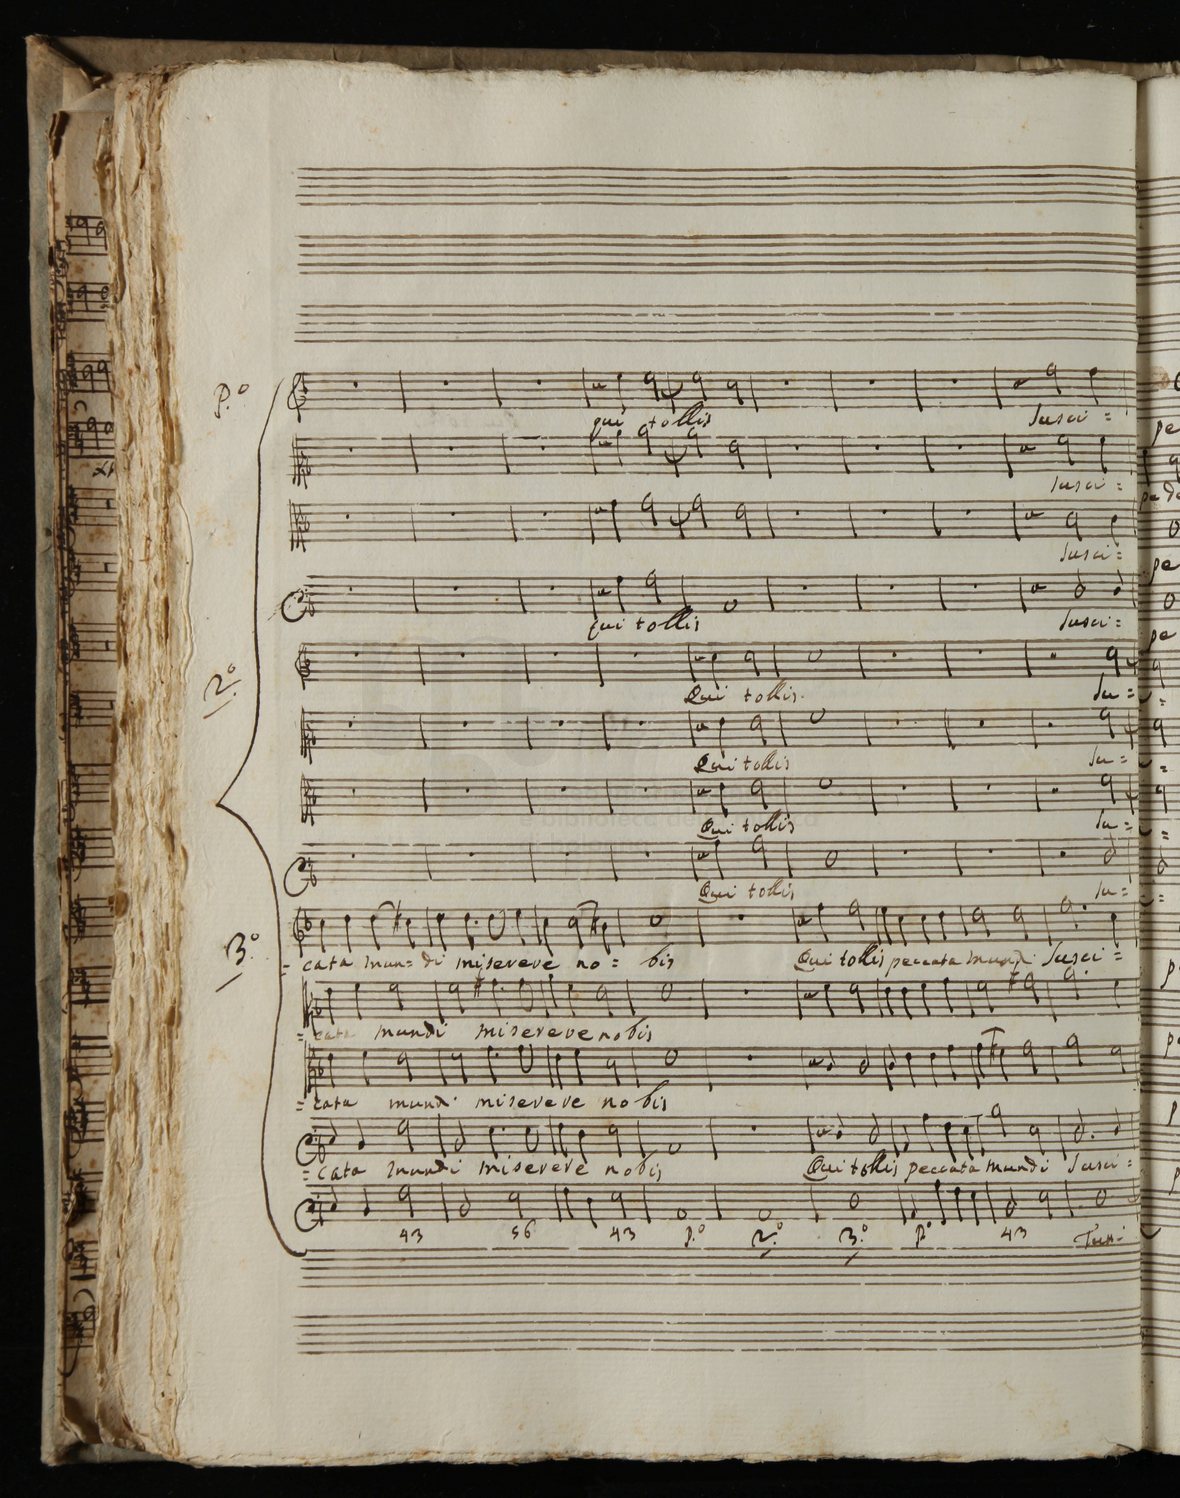 P.º
qui tollis susci=
susci=
susci=
qui tollis susci=
2.º
Qui tollis. su=
Qui tollis su=
Qui tollis su=
Qui tollis su=
3.º
=cata mun=di miserere no= bis Qui tollis peccata mundi susci=
=cata mundi miserere nobis
=cata mundi miserere nobis
=cata mundi miserere nobis Qui tollis peccata mundi susci=
43 56 43 P.º 2.º 3.º P.º 43 Tutti